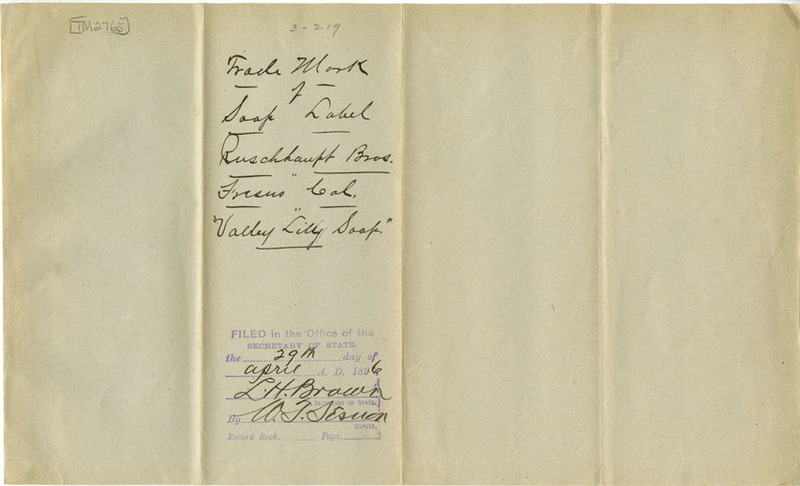 TM2765
3-219
Trade Mark
of
Soap Label
Ruschhaupt Bros.
Fresno" Cal.
"Valley "Lilly Soap"
FILED in the Office of the
SECRETARY OF STATE
the 29th day of
april A. D. 1896
L.H. Brown
SECRETARY OF STATE.
By W. T. Sesnon
DEPUTY.
Record Book Page